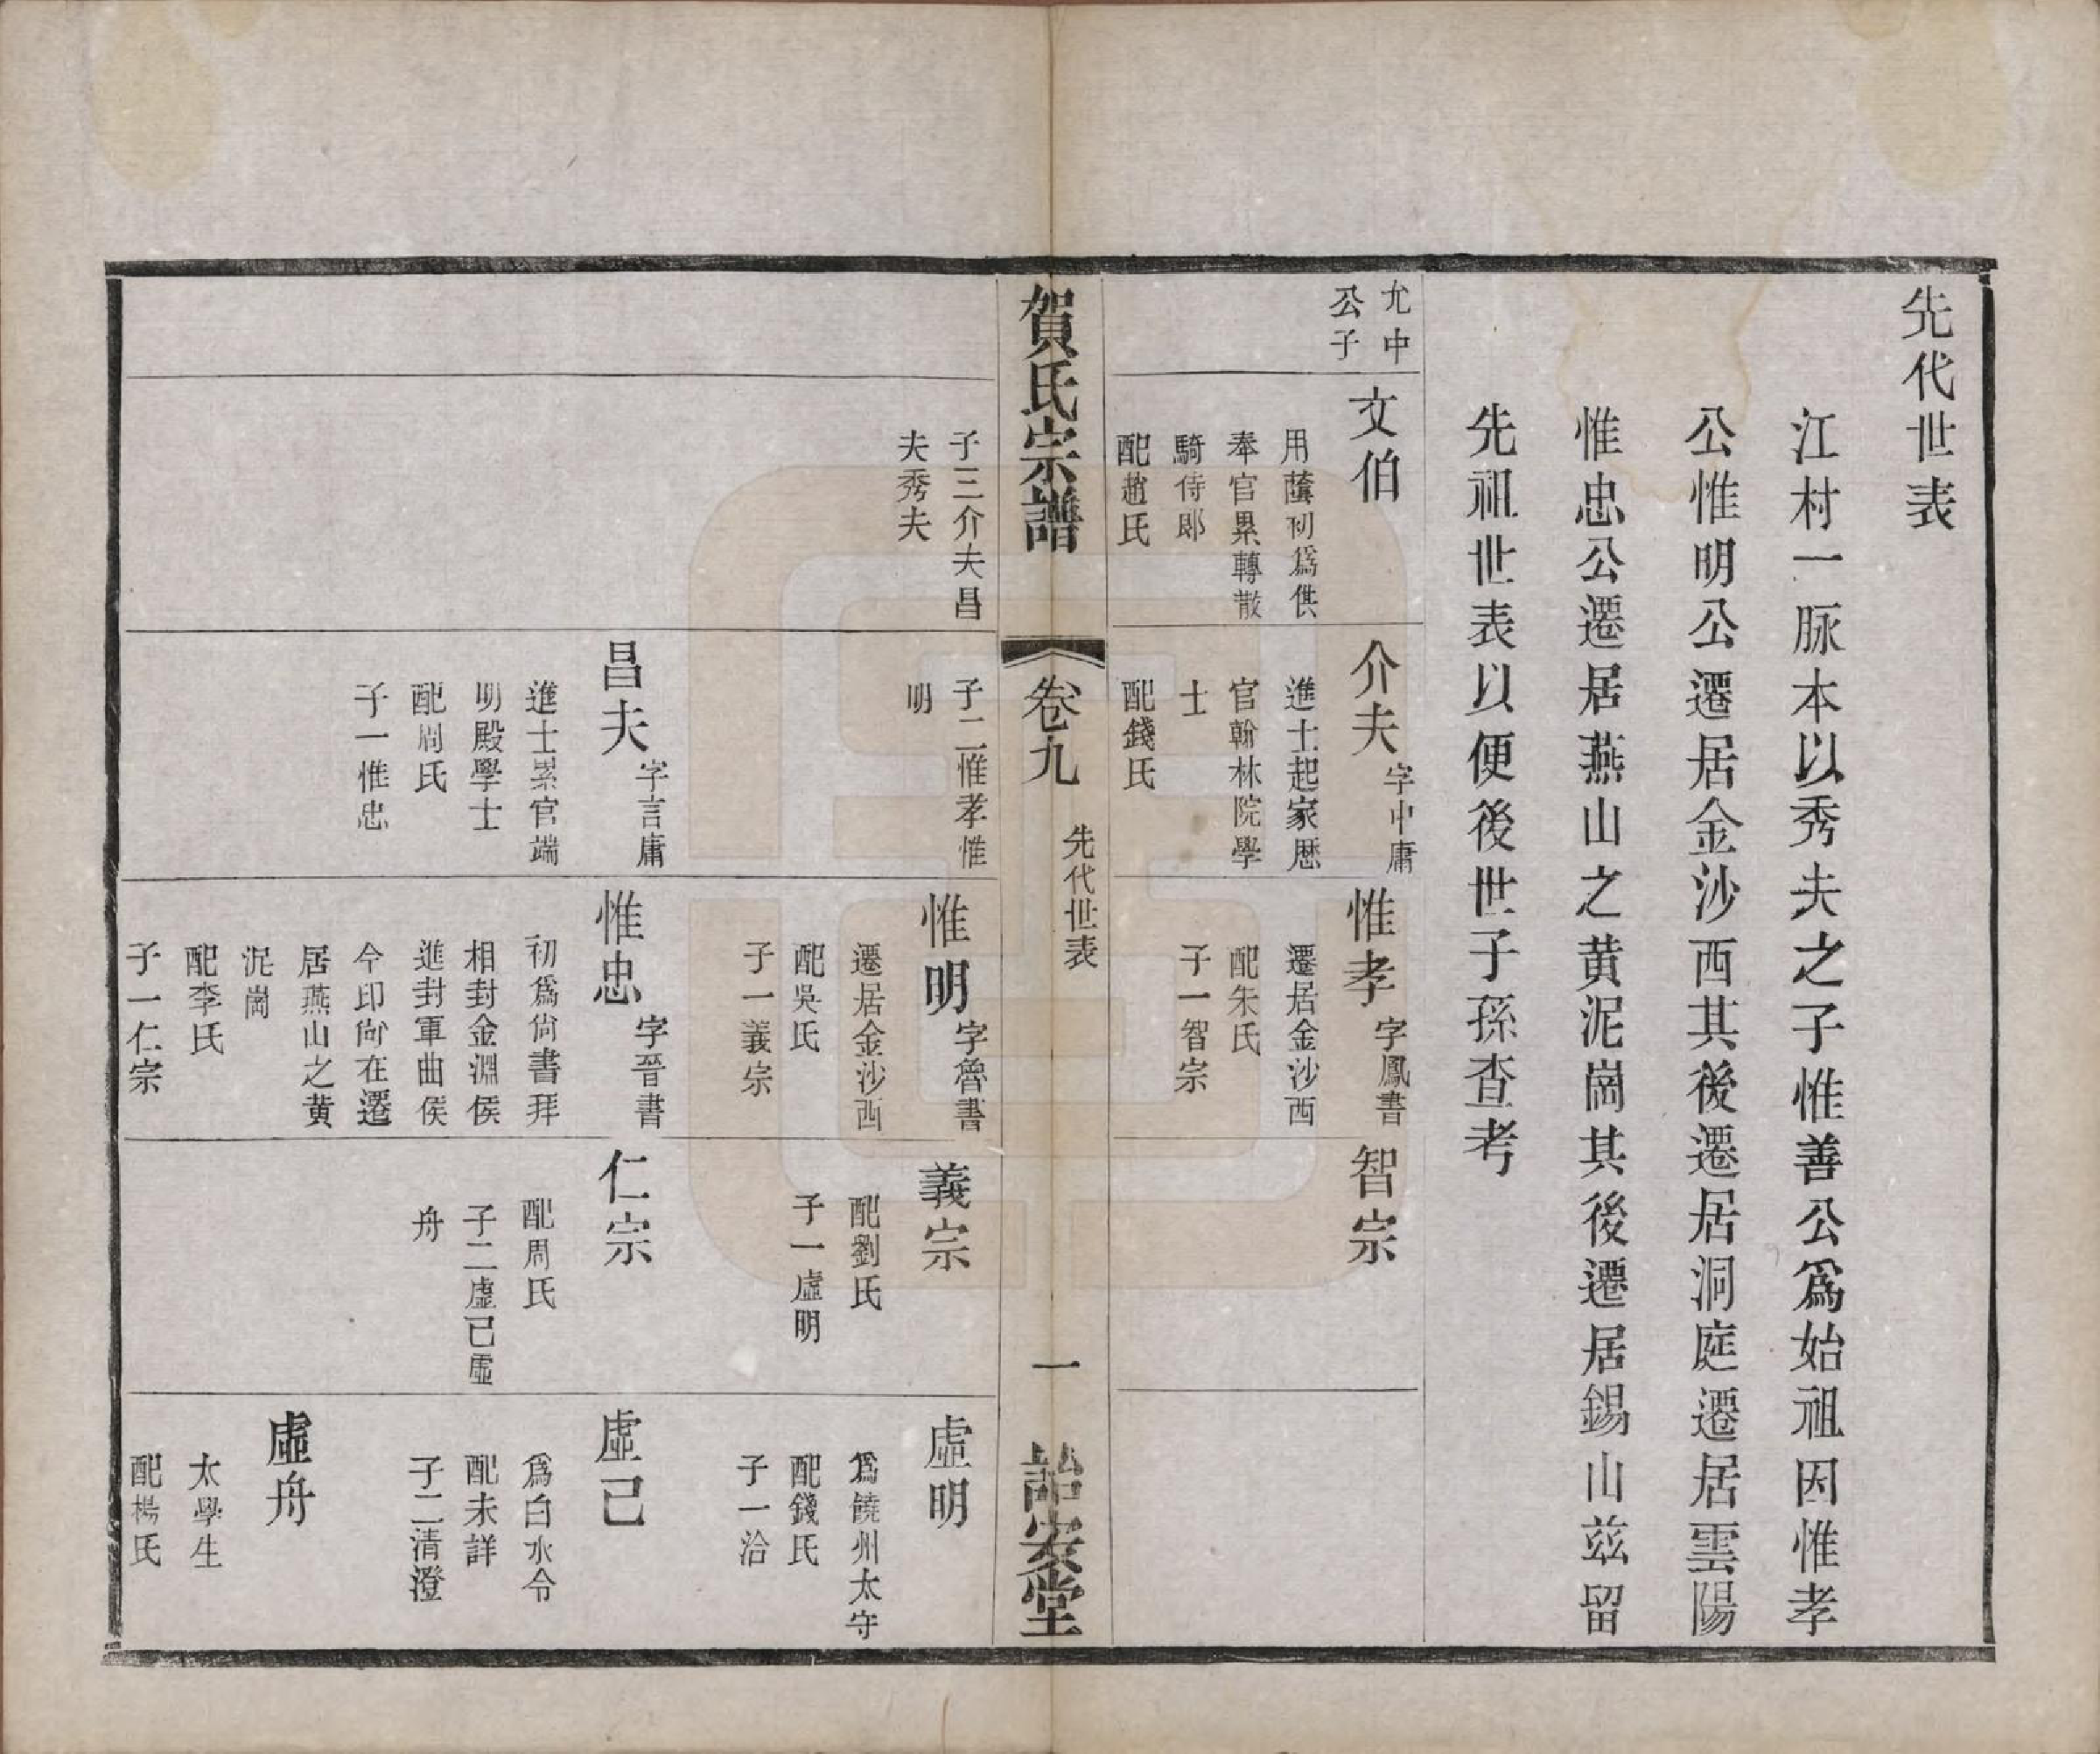 先代世表
江村一脉本以秀夫之子惟善公爲始祖因惟孝
公惟明公遷居金沙西其後遷居洞庭遷居雲陽
惟忠公遷居燕山之黄泥崗其後遷居錫山茲留
先祖世表以便後世子孫查考
允中
公子
文伯
用蔭初爲供
奉官累轉散
騎侍郎
配趙氏
介夫字中庸
進士起家歷
官翰林院學
士
配錢氏
惟孝字鳳書
遷居金沙西
配朱氏
子一智宗
智宗
賀氏宗譜
卷九
先代世表
一
詒安堂
子三介夫昌
夫秀夫
子二惟孝惟
明
昌夫字言庸
進士累官端
明殿學士
配周氏
子一惟忠
惟明字魯書
遷居金沙西
配吳氏
子一義宗
惟忠字晉書
初爲尚書拜
相封金淵侯
進封軍曲侯
今印尚在遷
居燕山之黄
泥崗
配李氏
子一仁宗
義宗
配劉氏
子一虛明
仁宗
配周氏
子二虛已虛
舟
虛明
爲饒州太守
配錢氏
子一洽
虛己
爲白水令
配未詳
子二清澄
虛舟
太學生
配楊氏